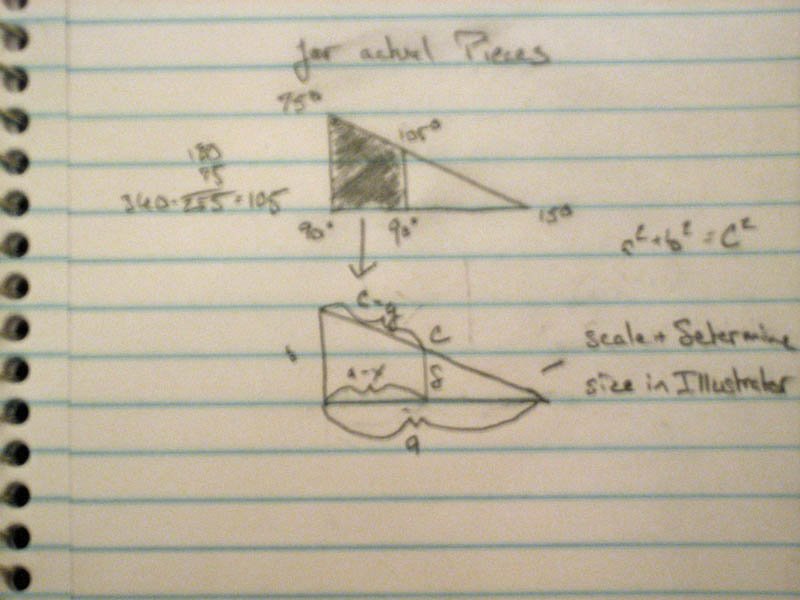 for actual Pieces
75°
105°
180
75
360-255=105
90°
90°
15°
a²+b²=C²
C-y
C
b
a-x
scale + Determine
size in Illustrator
a